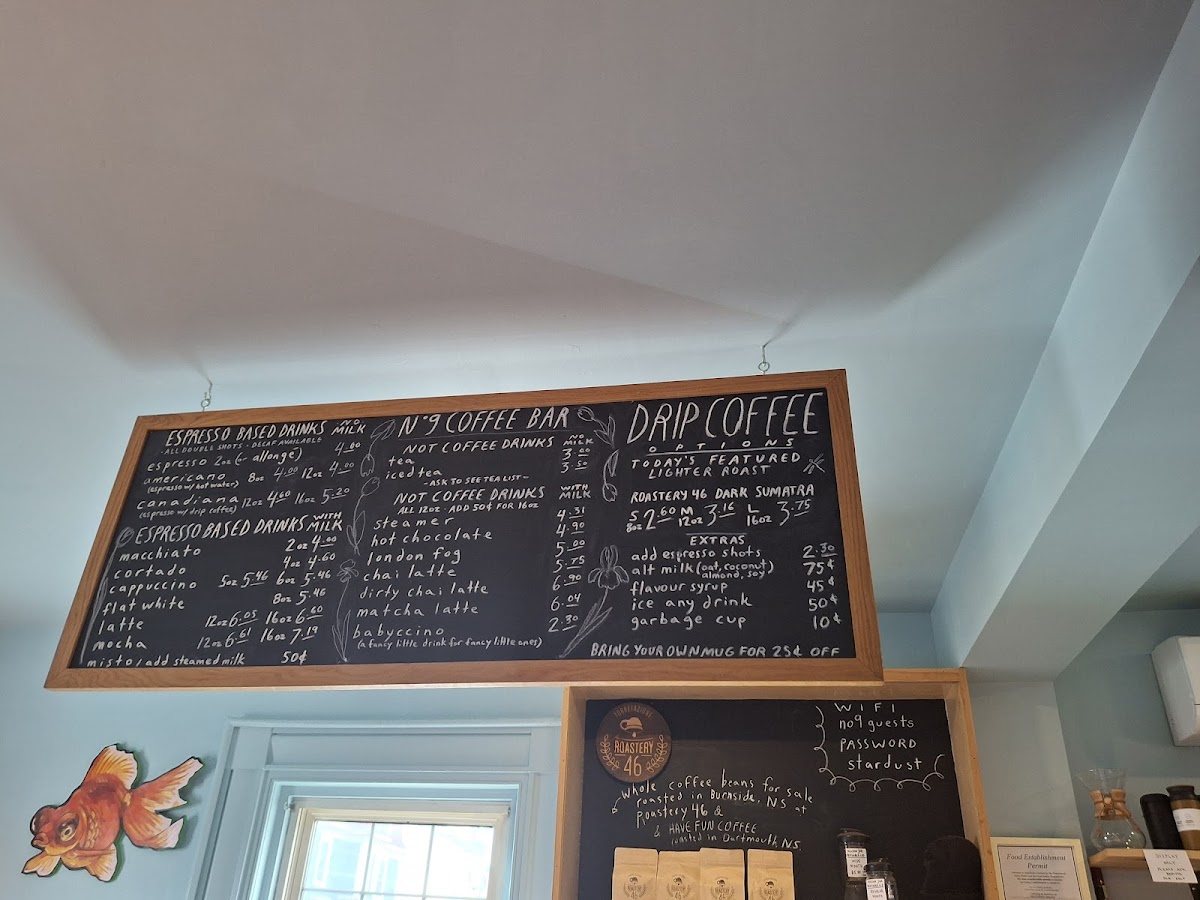 ESPRESSO BASED DRINKS NO MILK
·ALL DOUBLE SHOTS · DECAF AVAILABLE
espresso 2oz (or allonge) 4.00
americano 8oz 4.00 12oz 4.00
(espresso w/ hot water)
canadiana 12oz 4.60 16oz 5.20
(espresso w/ drip coffee)
ESPRESSO BASED DRINKS WITH MILK
macchiato 2oz 4.00
cortado 4oz 4.60
cappuccino 5oz 5.46 6oz 5.46
flat white 8oz 5.46
latte 12oz 6.05 16oz 6.60
mocha 12oz 6.61 16oz 7.19
misto/add steamed milk 50¢
N°9 COFFEE BAR
NOT COFFEE DRINKS NO MILK
tea 3.00
iced tea 3.50
-ASK TO SEE TEA LIST-
NOT COFFEE DRINKS WITH MILK
ALL 12oz · ADD 50¢ FOR 16oz
steamer 4.31
hot chocolate 4.90
london fog 5.00
chai latte 5.75
dirty chai latte 6.90
matcha latte 6.04
babyccino 2.30
(a fancy little drink for fancy little ones)
DRIP COFFEE
OPTIONS
TODAY'S FEATURED
LIGHTER ROAST
ROASTERY 46 DARK SUMATRA
S 8oz 2.60 M 12oz 3.16 L 16oz 3.75
EXTRAS
add espresso shots 2.30
alt milk (oat, coconut, almond, soy) 75¢
flavour syrup 45¢
ice any drink 50¢
garbage cup 10¢
BRING YOUR OWN MUG FOR 25¢ OFF
ROASTERY
46
WIFI
no9guests
PASSWORD
stardust
whole coffee beans for sale
roasted in Burnside, NS at
roastery 46 &
& HAVE FUN COFFEE
roasted in Dartmouth, NS.
Food Establishment
Permit
DISPLAY
ONLY